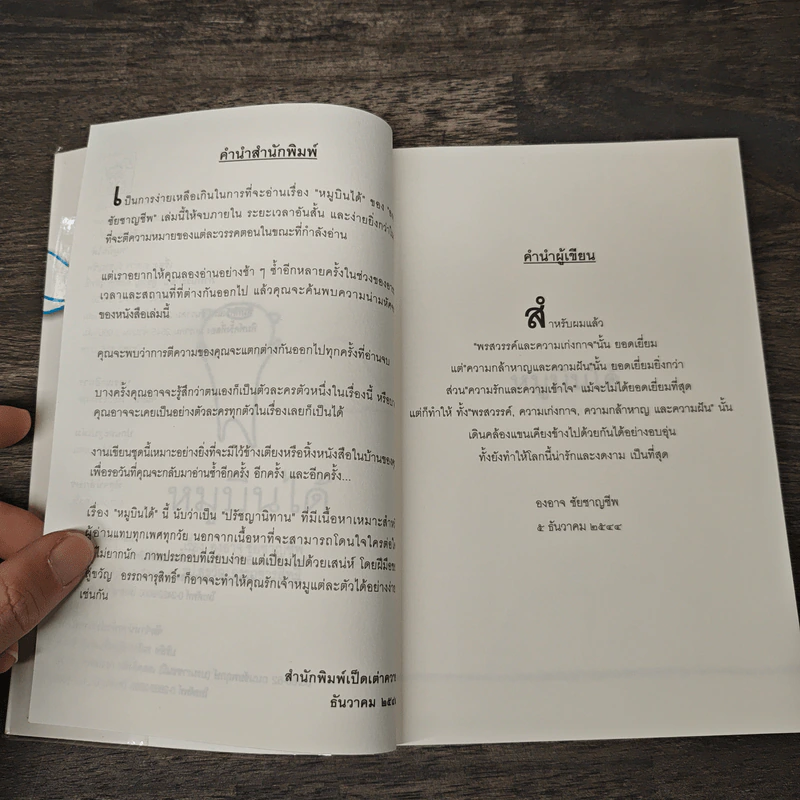 คำนำสำนักพิมพ์
เป็นการง่ายเหลือเกินในการที่จะอ่านเรื่อง "หมูบินได้" ของ
ชัยชาญชีพ" เล่มนี้ให้จบภายใน ระยะเวลาอันสั้น และง่ายยิ่งกว่า
ที่จะตีความหมายของแต่ละวรรคตอนในขณะที่กำลังอ่าน
แต่เราอยากให้คุณลองอ่านอย่างช้า ๆ ซ้ำอีกหลายครั้งในช่วงของ
เวลาและสถานที่ที่ต่างกันออกไป แล้วคุณจะค้นพบความน่า
ของหนังสือเล่มนี้
คุณจะพบว่าการตีความของคุณจะแตกต่างกันออกไปทุกครั้งที่อ่านจบ
บางครั้งคุณอาจจะรู้สึกว่าตนเองก็เป็นตัวละครตัวหนึ่งในเรื่องนี้
คุณอาจจะเคยเป็นอย่างตัวละครทุกตัวในเรื่องเลยก็เป็นได้
งานเขียนชุดนี้เหมาะอย่างยิ่งที่จะมีไว้ข้างเตียงหรือหิ้งหนังสือในบ้านของ
เพื่อรอวันที่คุณจะกลับมาอ่านซ้ำอีกครั้ง อีกครั้ง และอีกครั้ง...
เรื่อง "หมูบินได้" นี้ นับว่าเป็น "ปรัชญานิทาน" ที่มีเนื้อหาเหมาะ
ผู้อ่านแทบทุกเพศทุกวัย นอกจากเนื้อหาที่จะสามารถโดนใจใคร
ไม่ยากนัก ภาพประกอบที่เรียบง่าย แต่เปี่ยมไปด้วยเสน่ห์ โดยฝีมือ
อรรถจารุสิทธิ์" ก็อาจจะทำให้คุณรักเจ้าหมูแต่ละตัวได้อย่าง
เช่นกัน
สำนักพิมพ์เป็ดเต่า
ธันวาคม
คำนำผู้เขียน
สำหรับผมแล้ว
"พรสวรรค์และความเก่งกาจ"นั้น ยอดเยี่ยม
แต่"ความกล้าหาญและความฝัน"นั้น ยอดเยี่ยมยิ่งกว่า
ส่วน"ความรักและความเข้าใจ" แม้จะไม่ได้ยอดเยี่ยมที่สุด
แต่ก็ทำให้ ทั้ง"พรสวรรค์, ความเก่งกาจ, ความกล้าหาญ และความฝัน" นั้น
เดินคล้องแขนเคียงข้างไปด้วยกันได้อย่างอบอุ่น
ทั้งยังทำให้โลกนี้น่ารักและงดงาม เป็นที่สุด
องอาจ ชัยชาญชีพ
๕ ธันวาคม ๒๕๔๔